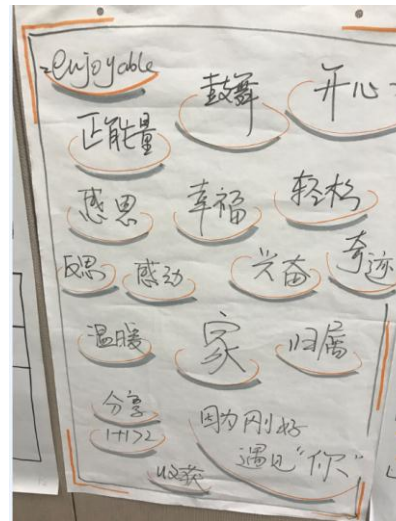 enjoyable 鼓舞 开心
正能量
感恩 幸福 轻松
反思 感动 兴奋 奇迹
温暖 家 归属
分享
1+1>2
因为刚好
遇见“你”
收获